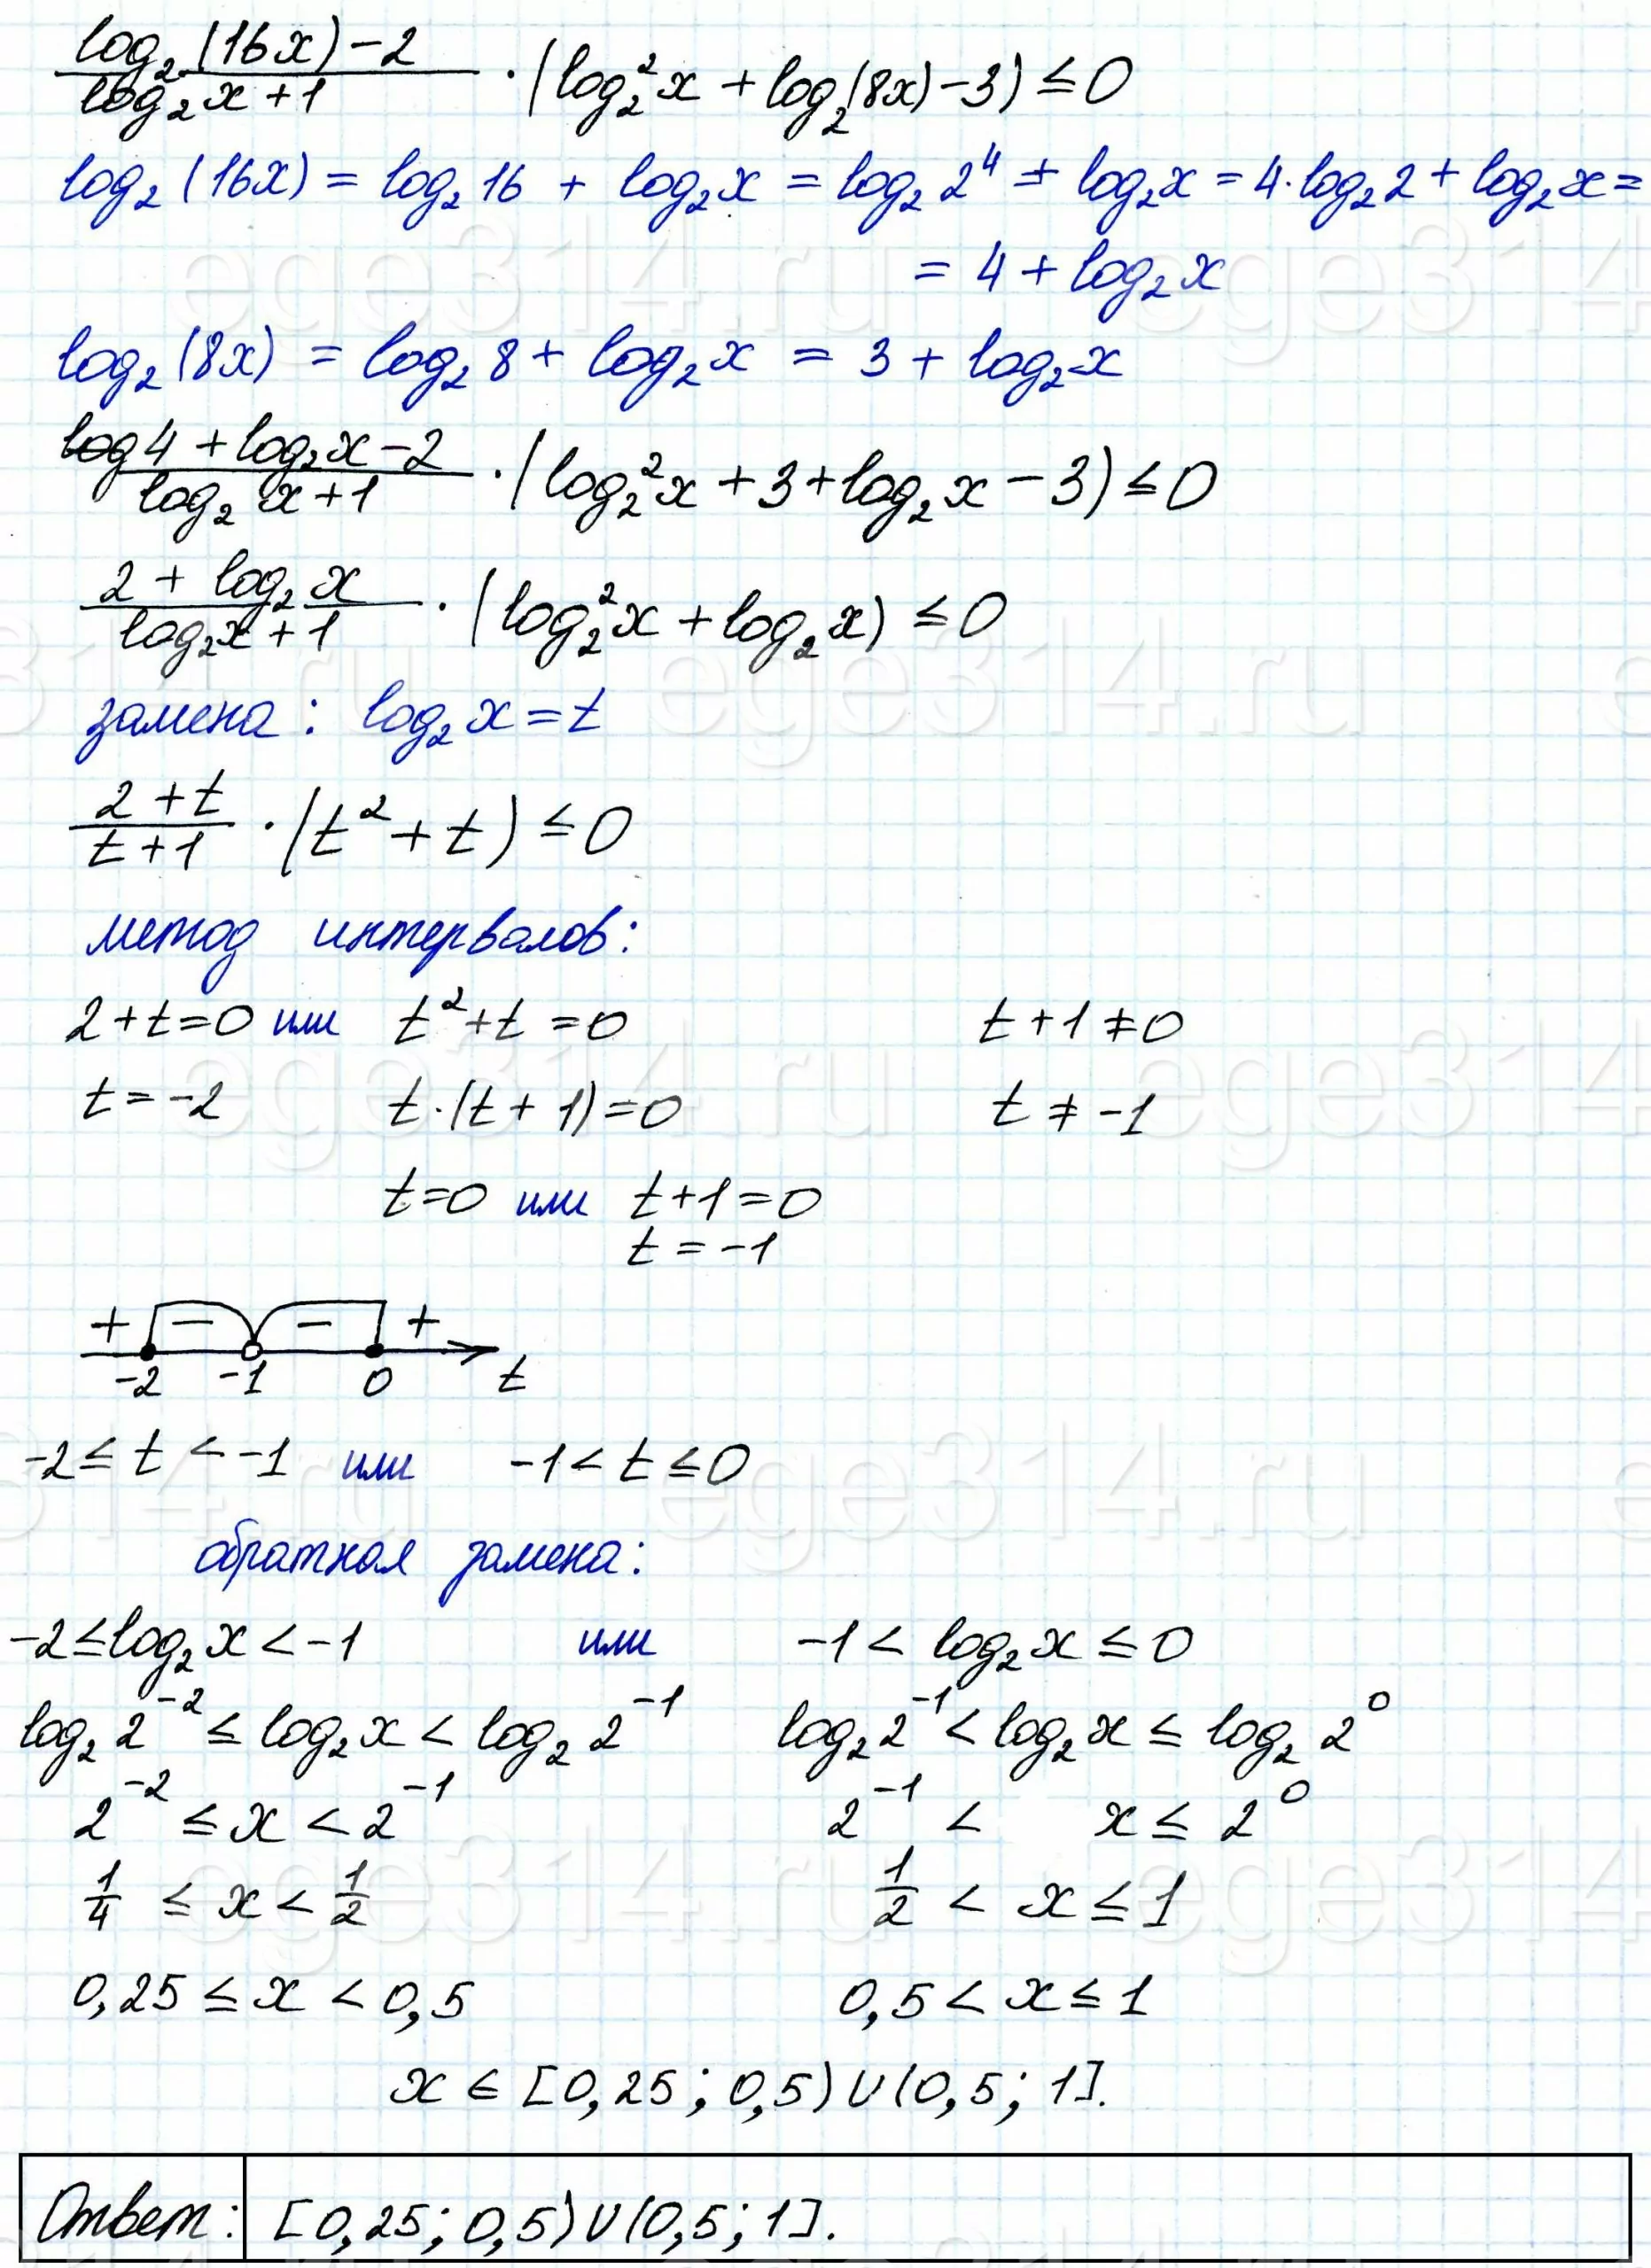 log₂(16x)−2 / log₂x+1 · (log₂²x + log₂(8x)−3) ≤ 0
log₂(16x) = log₂16 + log₂x = log₂2⁴ + log₂x = 4·log₂2 + log₂x =
= 4 + log₂x
log₂(8x) = log₂8 + log₂x = 3 + log₂x
log4 + log₂x−2 / log₂x+1 · (log₂²x + 3 + log₂x − 3) ≤ 0
2 + log₂x / log₂x+1 · (log₂²x + log₂x) ≤ 0
замена: log₂x = t
2+t / t+1 · (t² + t) ≤ 0
метод интервалов:
2+t=0 или t²+t=0 t+1≠0
t=−2 t·(t+1)=0 t≠−1
t=0 или t+1=0
t=−1
+ − − +
−2 −1 0 t
−2 ≤ t < −1 или −1 < t ≤ 0
обратная замена:
−2 ≤ log₂x < −1 или −1 < log₂x ≤ 0
log₂2⁻² ≤ log₂x < log₂2⁻¹ log₂2⁻¹ < log₂x ≤ log₂2⁰
2⁻² ≤ x < 2⁻¹ 2⁻¹ < x ≤ 2⁰
1/4 ≤ x < 1/2 1/2 < x ≤ 1
0,25 ≤ x < 0,5 0,5 < x ≤ 1
x ∈ [0,25; 0,5) ∪ (0,5; 1].
Ответ: [0,25; 0,5) ∪ (0,5; 1].
ege314.ru